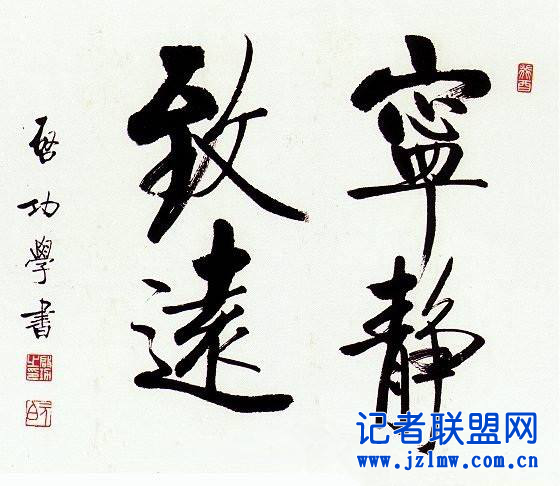 寧靜
致遠
啟功學書
记者联盟网
www.jzlmw.com.cn